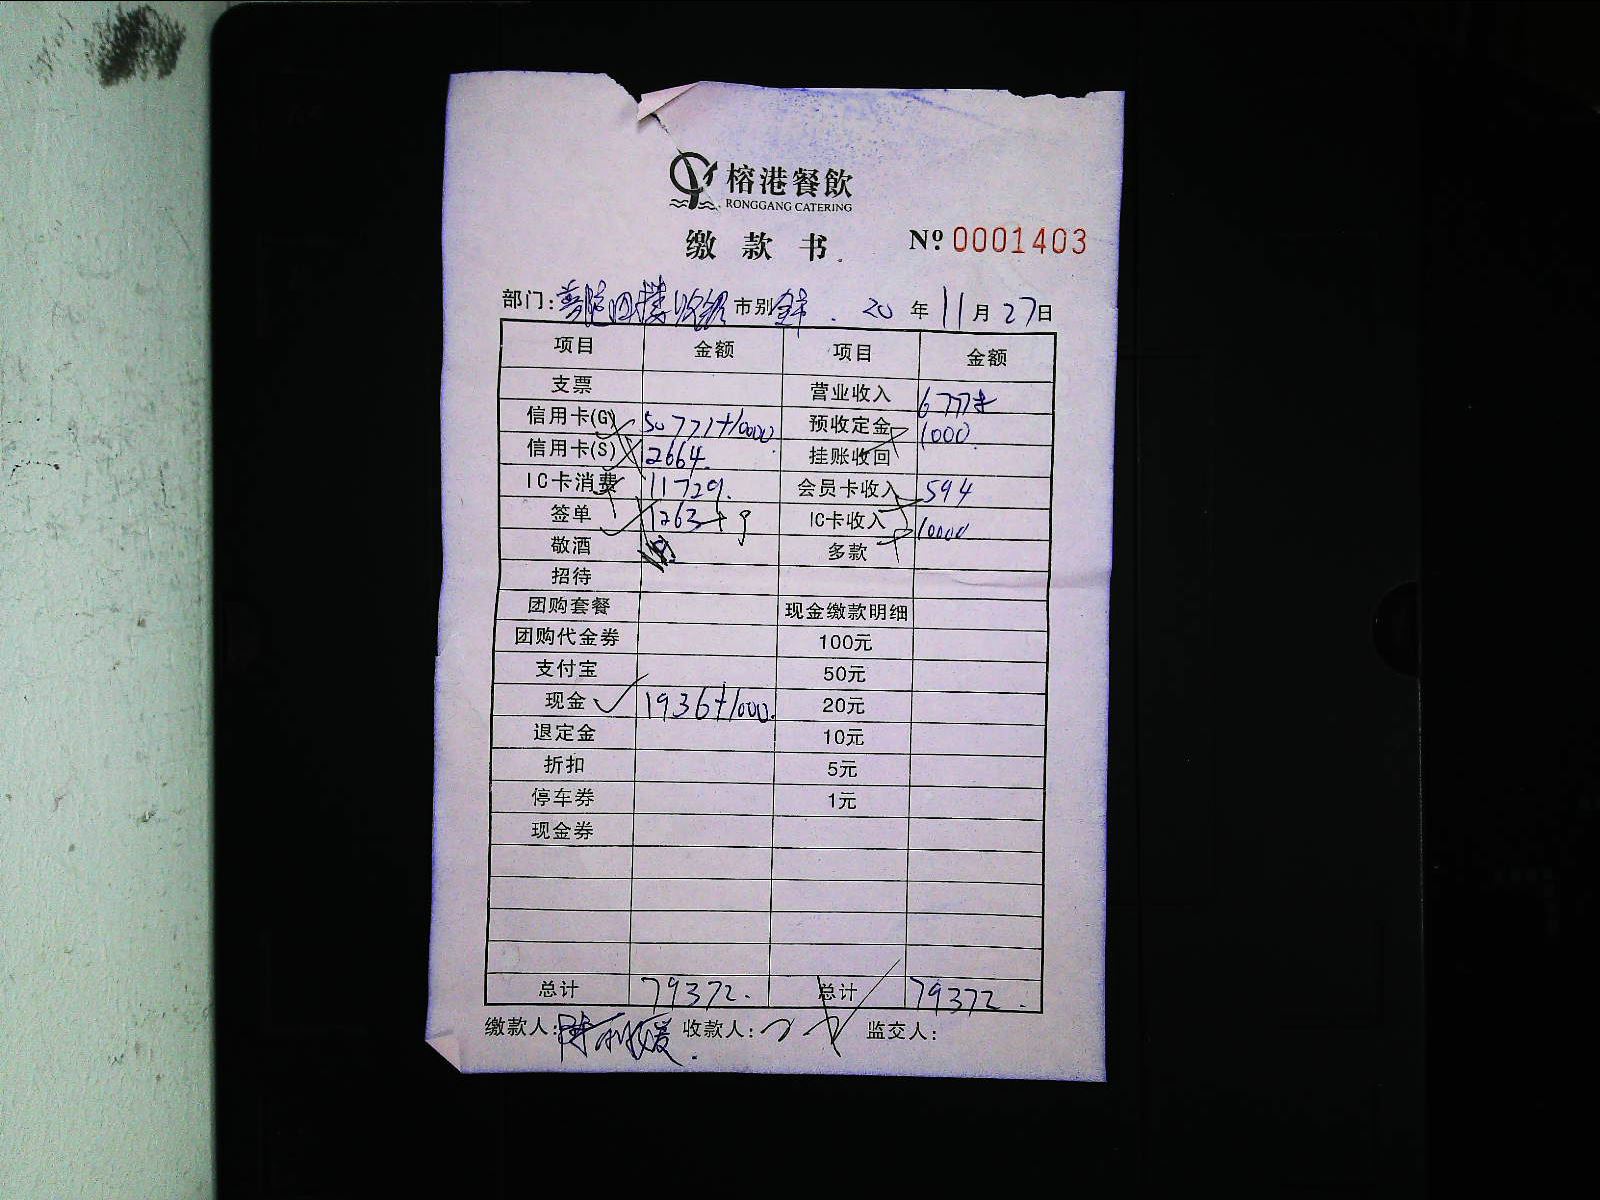 榕港餐飲
RONGGANG CATERING
缴款书
Nº 0001403
部门: 四楼收银 市别 20 年 11 月 27 日
项目 金额 项目 金额
支票 营业收入
信用卡(G) 50771+10000 预收定金 1000.
信用卡(S) 2664. 挂账收回
IC卡消费 11729. 会员卡收入 594
签单 1263+9 IC卡收入 10000
敬酒 多款
招待
团购套餐 现金缴款明细
团购代金券 100元
支付宝 50元
现金 1936+1000. 20元
退定金 10元
折扣 5元
停车券 1元
现金券
总计 79372. 总计 79372.
缴款人: 收款人: 监交人: